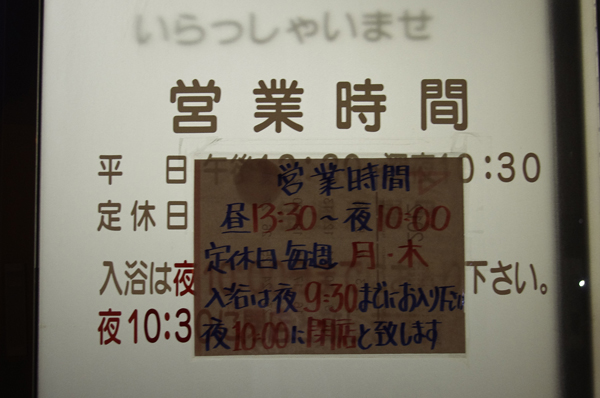 いらっしゃいませ
営業時間
平日 午後 10:30
定休日
入浴は夜 下さい。
夜10:3
営業時間
昼13:30～夜10:00
定休日毎週 月・木
入浴は夜9:30までにお入り下さい
夜10:00に閉店と致します